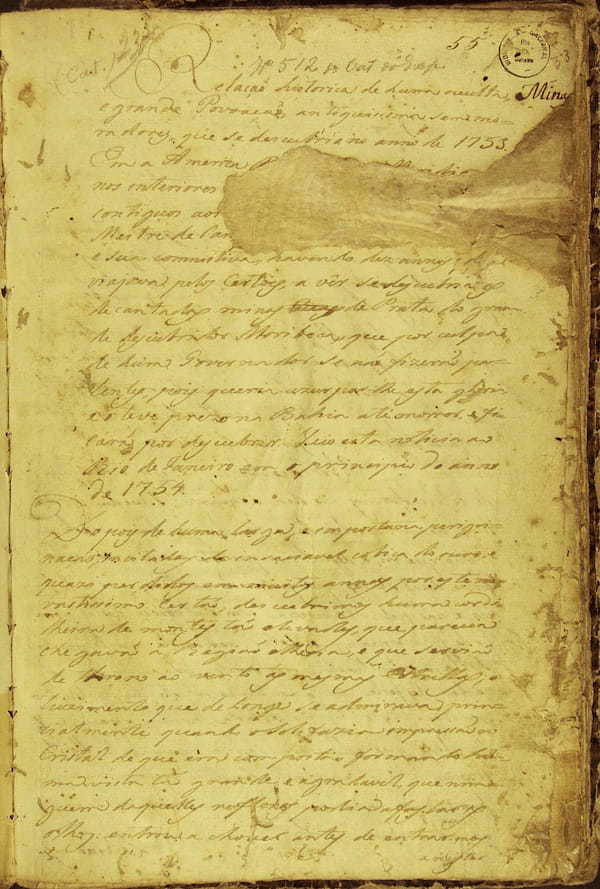 55
Nº 512 do Cat. da Exp.
Minas
Relação historica de huma occulta,
e grande Povoação, antiquissima sem mo-
radores, que se descubriu no anno de 1753.
Em a America
nos interiores
contiguos aos
Mestre de Can
e sua comitiva, havendo dez annos, que
viajava pelos Certões, a vêr se descubria as
decantadas minas de Prata do gran-
de descubridor Moribeca, que por culpa
de hum Governador se não fizerão pa-
tentes, pois queria uzurparlhe esta gloria
e o teve prezo na Bahia até morrer, e fi-
carão por descubrir. Veio esta noticia ao
Rio de Janeiro em o principio do anno
de 1754.
Depois de huma larga, e importuna perigri-
nação, incitados da insaciavel cobiça do ouro, e
quazi perdidos em muitos annos por este
vastissimo Certão, descubrimos huma cordi-
lheira de montes tão elevados, que parecia
chegavão a Região etheria, e que servião
de throno ao vento, ás mesmas Estrellas; o
luzimento que de longe se admirava, prin-
cipalmente quando o Sol fazia impressão ao
Cristal de que era composta, formando hu-
ma vista tão grande, e agradavel, que nin-
guem daquelles reflexos podia afastar os
olhos: entrou a chover antes de entrarmos